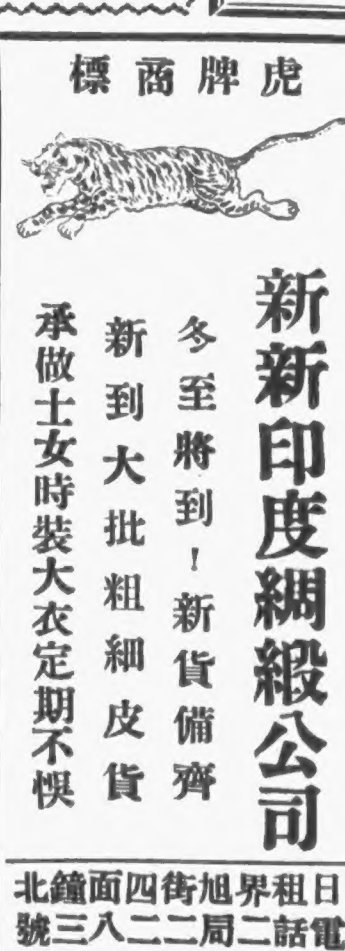 虎牌商標
新新印度綢緞公司
冬至將到！新貨備齊
新到大批粗細皮貨
承做士女時裝大衣定期不悞
日租界旭街四面鐘北
電話二局二二八三號